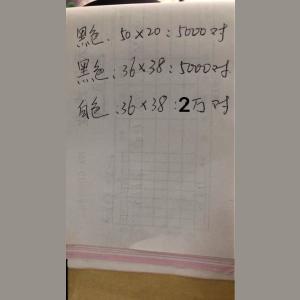 黑色:50×20:5000对
黑色:36×38:5000对
白色:36×38:2万对